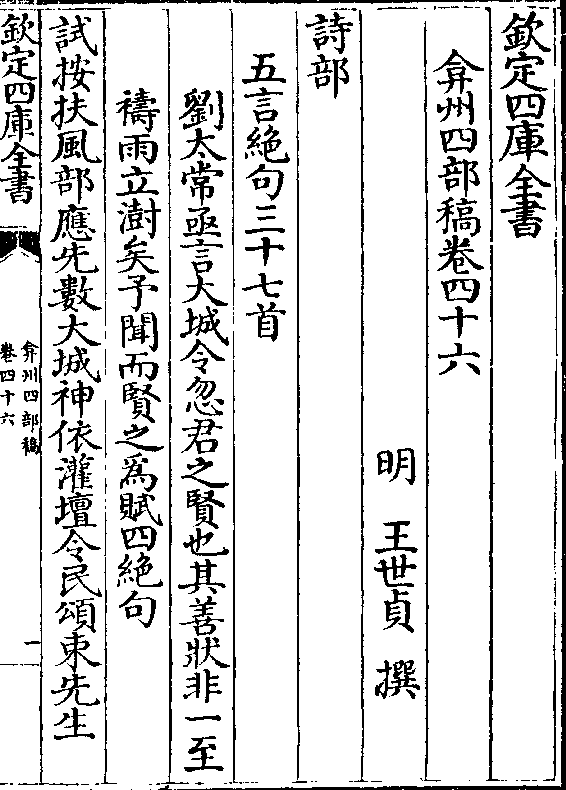 欽定四庫全書
弇州四部稿卷四十六
明 王世貞 撰
詩部
五言絶句三十七首
劉太常亟言大城令忽君之賢也其善狀非一至
禱雨立澍矣予聞而賢之為賦四絶句
試按扶風部應先數大城神依灌壇令民頌束先生
欽定四庫全書
弇州四部稿
卷四十六
一